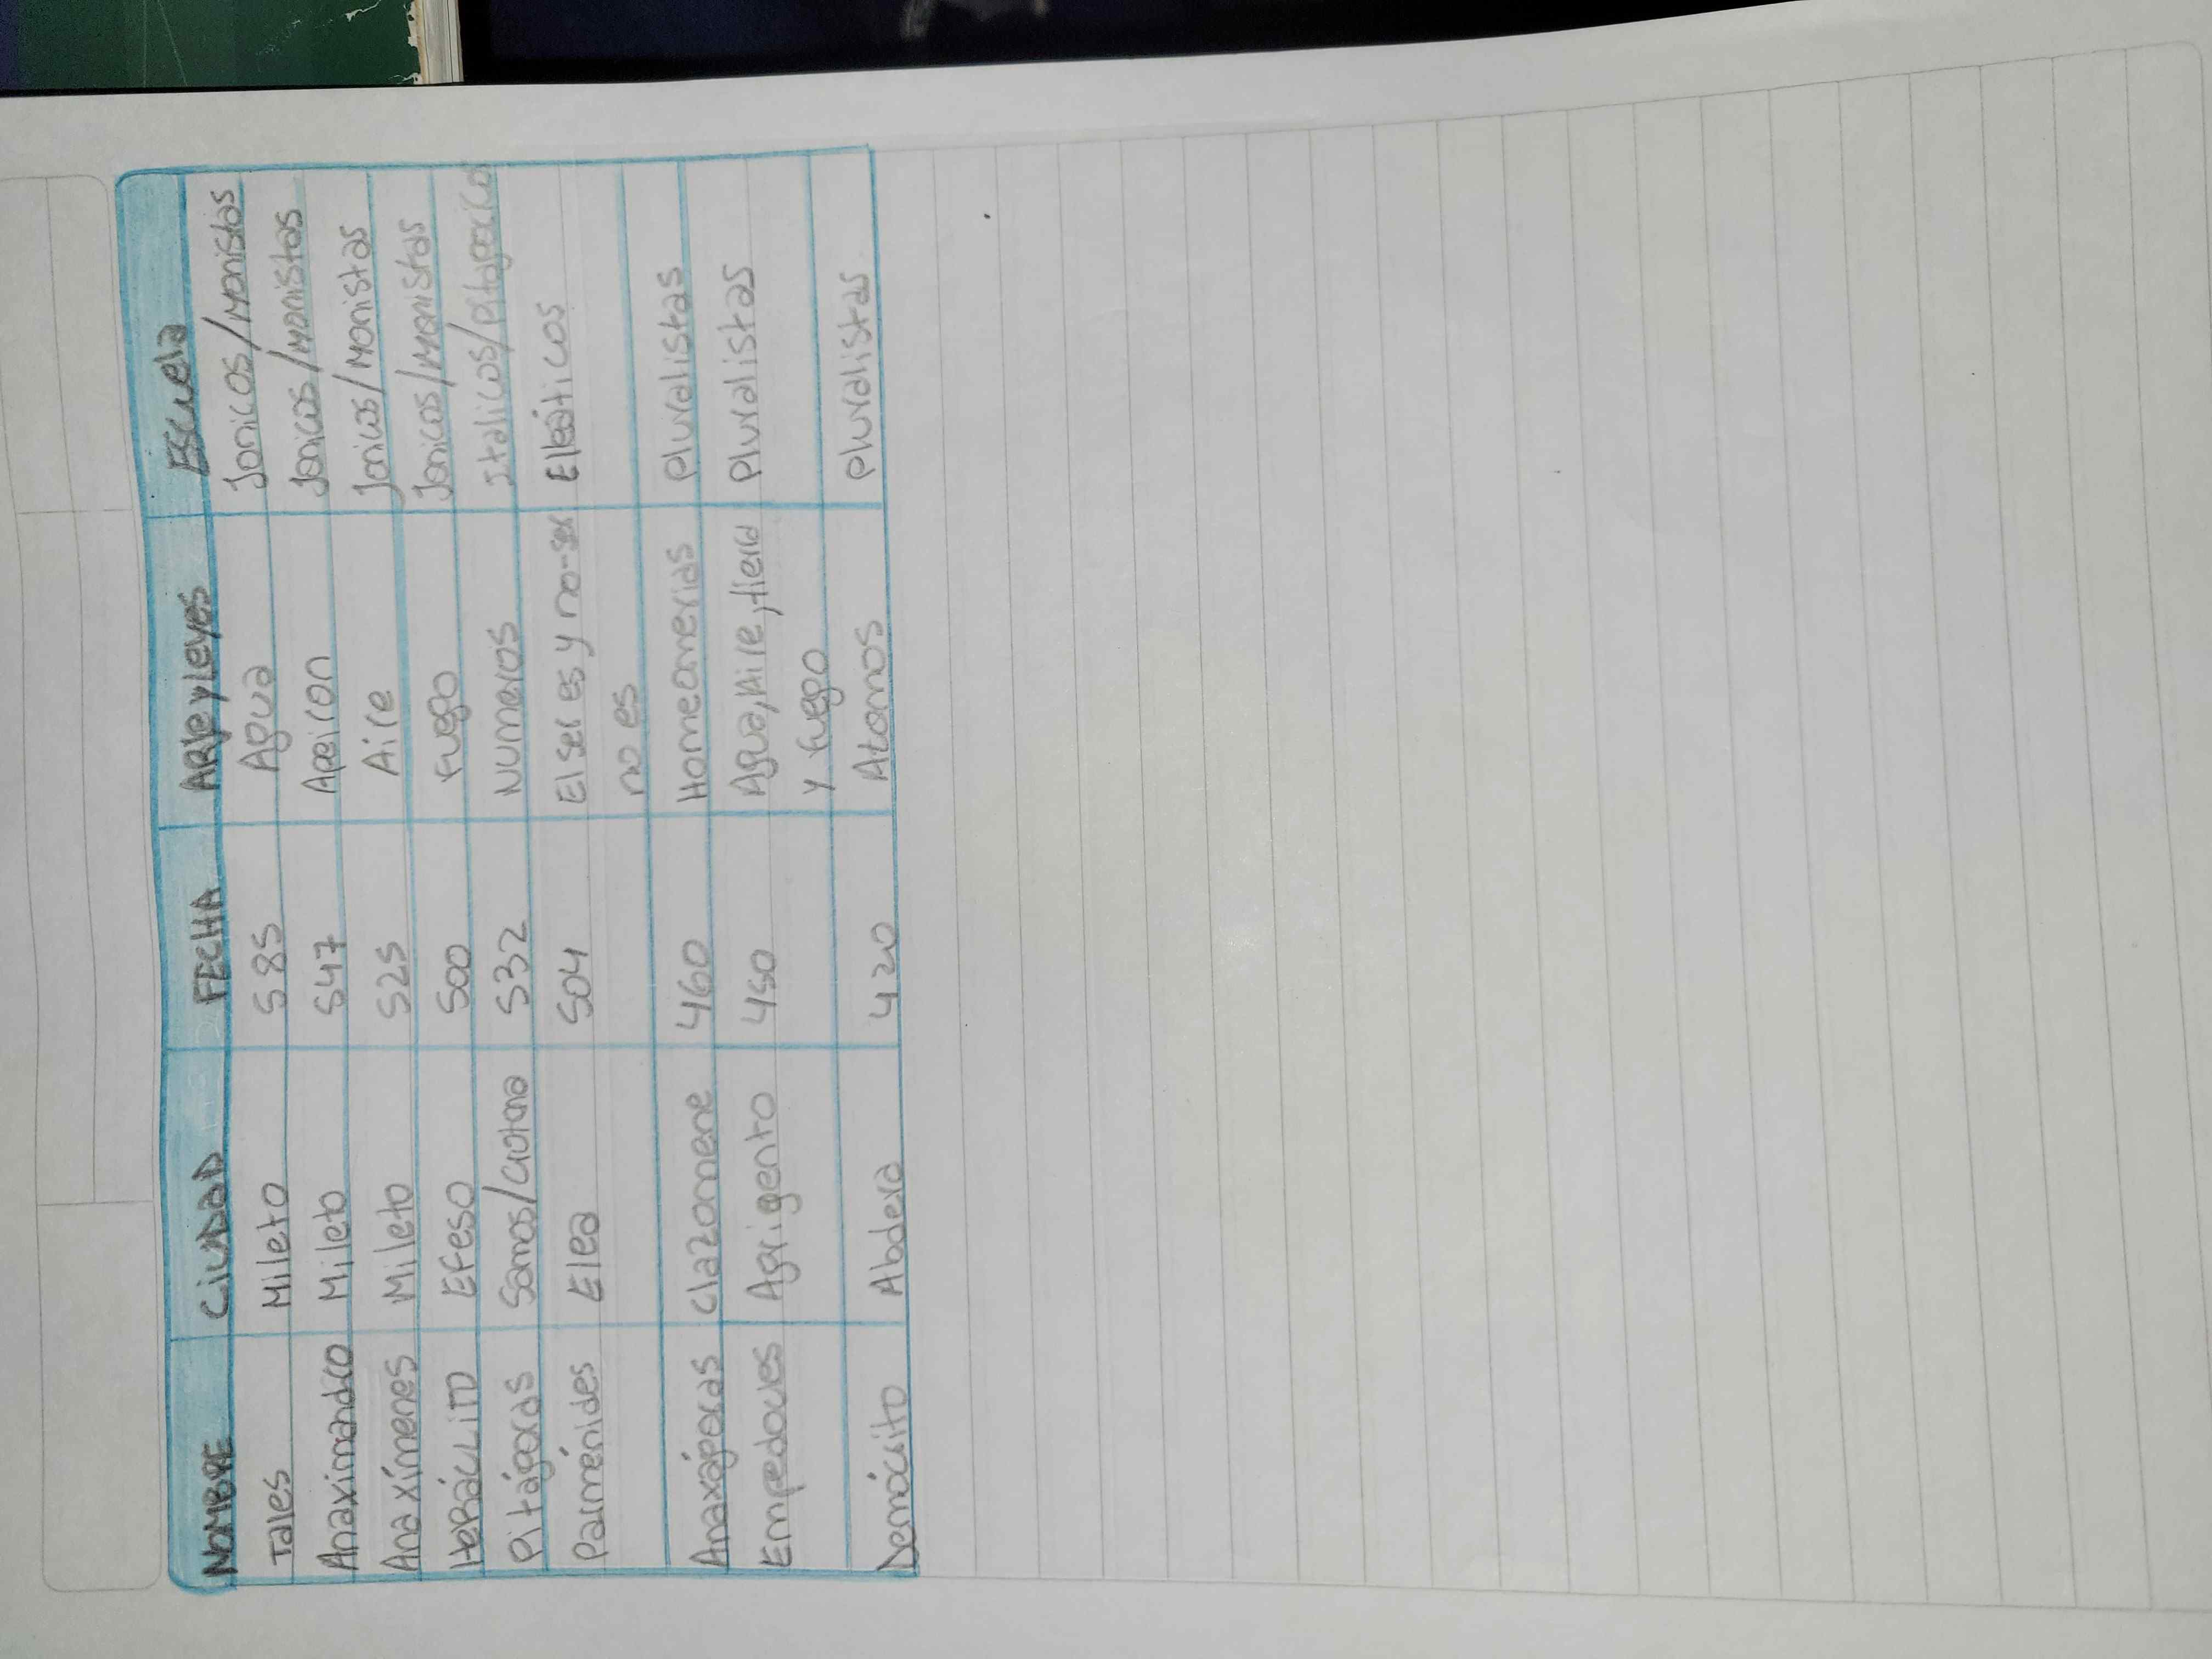 NOMBRE CIUDAD FECHA ARJe y Leyes Escuela
Tales Mileto 585 Agua Jonicos/Monistas
Anaximandro Mileto 547 Apeiron Jonicos/Monistas
Anaxímenes Mileto 525 Aire Jonicos/Monistas
HeRÁCLITO Efeso 500 Fuego Jonicos/Monistas
Pitágoras Samos/Crotona 532 Numeros Italicos/pitagorico
Parménides Elea 504 El ser es y no-ser Eleáticos
no es
Anaxágoras Clazomene 460 Homeomerias Pluralistas
Empedocles Agrigento 450 Agua, Aire, tierra Pluralistas
y fuego
Demócrito Abdera 420 Atomos Pluralistas